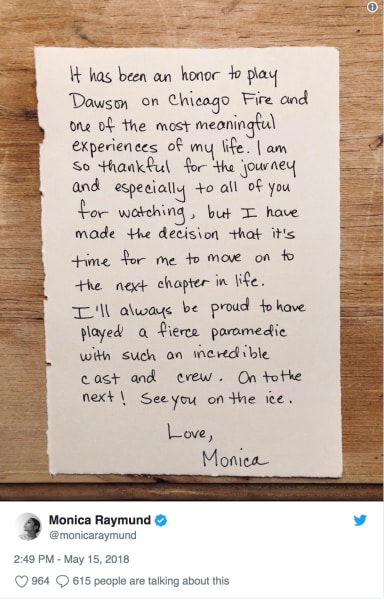 It has been an honor to play
Dawson on Chicago Fire and
one of the most meaningful
experiences of my life. I am
so thankful for the journey
and especially to all of you
for watching, but I have
made the decision that it's
time for me to move on to
the next chapter in life.
I'll always be proud to have
played a fierce paramedic
with such an incredible
cast and crew. On to the
next! See you on the ice.
Love,
Monica
Monica Raymund
@monicaraymund
2:49 PM - May 15, 2018
964 615 people are talking about this